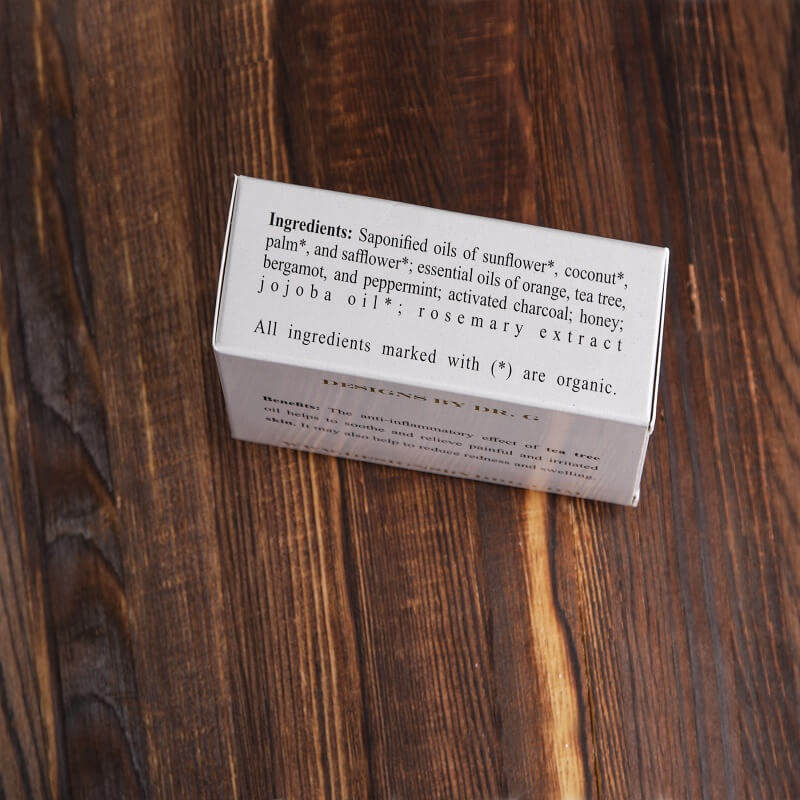 Ingredients: Saponified oils of sunflower*, coconut*,
palm*, and safflower*; essential oils of orange, tea tree,
bergamot, and peppermint; activated charcoal; honey;
jojoba oil*; rosemary extract
All ingredients marked with (*) are organic.
DESIGNS BY DR. G
Benefits: The anti-inflammatory effect of tea tree
oil helps to soothe and relieve painful and irritated
skin. It may also help to reduce redness and swelling.